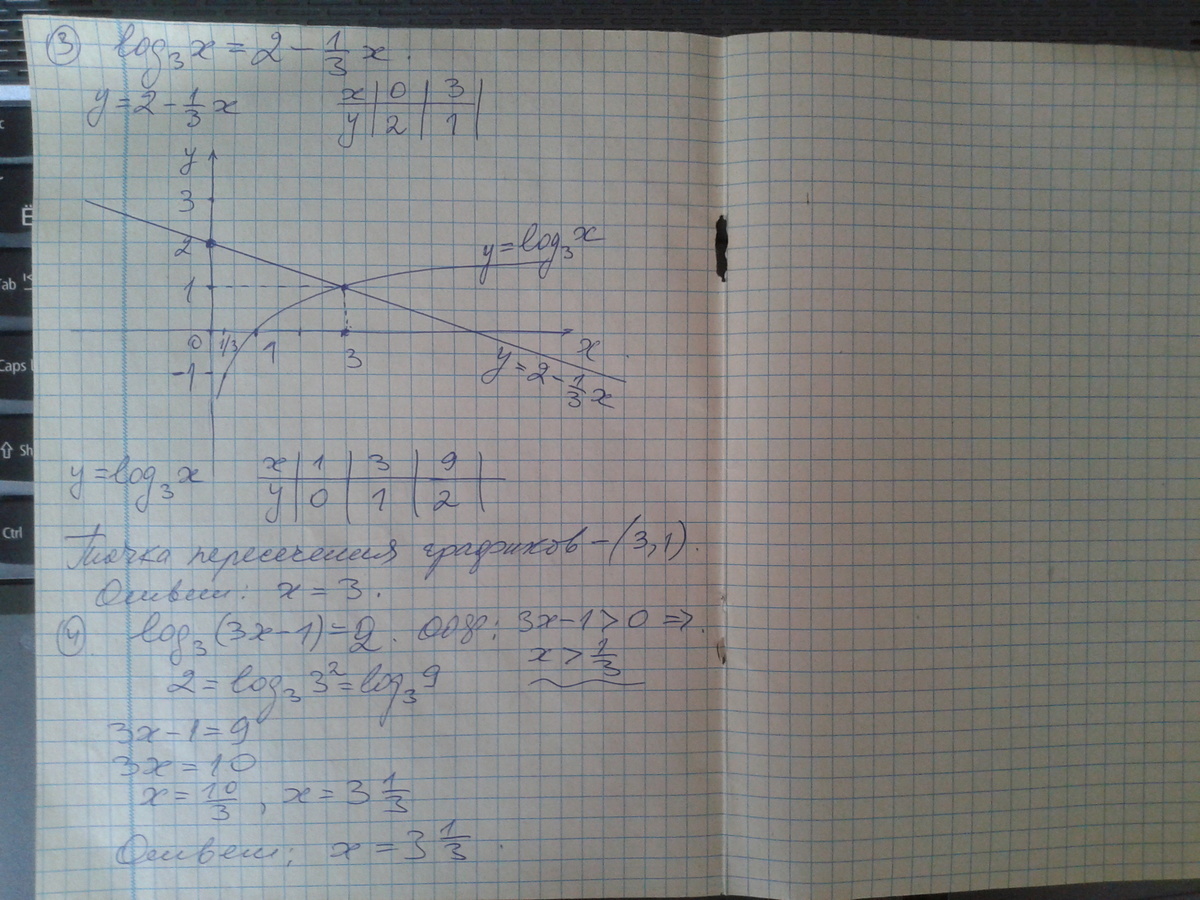 ③ log₃x = 2 - 1/3 x.
y = 2 - 1/3 x
x | 0 | 3 |
y | 2 | 1 |
y
3
2
y = log₃x
1
0 1/3 1 3 x
-1
y = 2 - 1/3 x
y = log₃x
x | 1 | 3 | 9 |
y | 0 | 1 | 2 |
Точка пересечения графиков - (3,1).
Ответ: x = 3.
④ log₃(3x-1) = 2. ОДЗ: 3x-1>0 ⇒.
x > 1/3
2 = log₃3² = log₃9
3x-1 = 9
3x = 10
x = 10/3, x = 3 1/3
Ответ: x = 3 1/3.
Ё
Tab
Caps
Sh
Ctrl